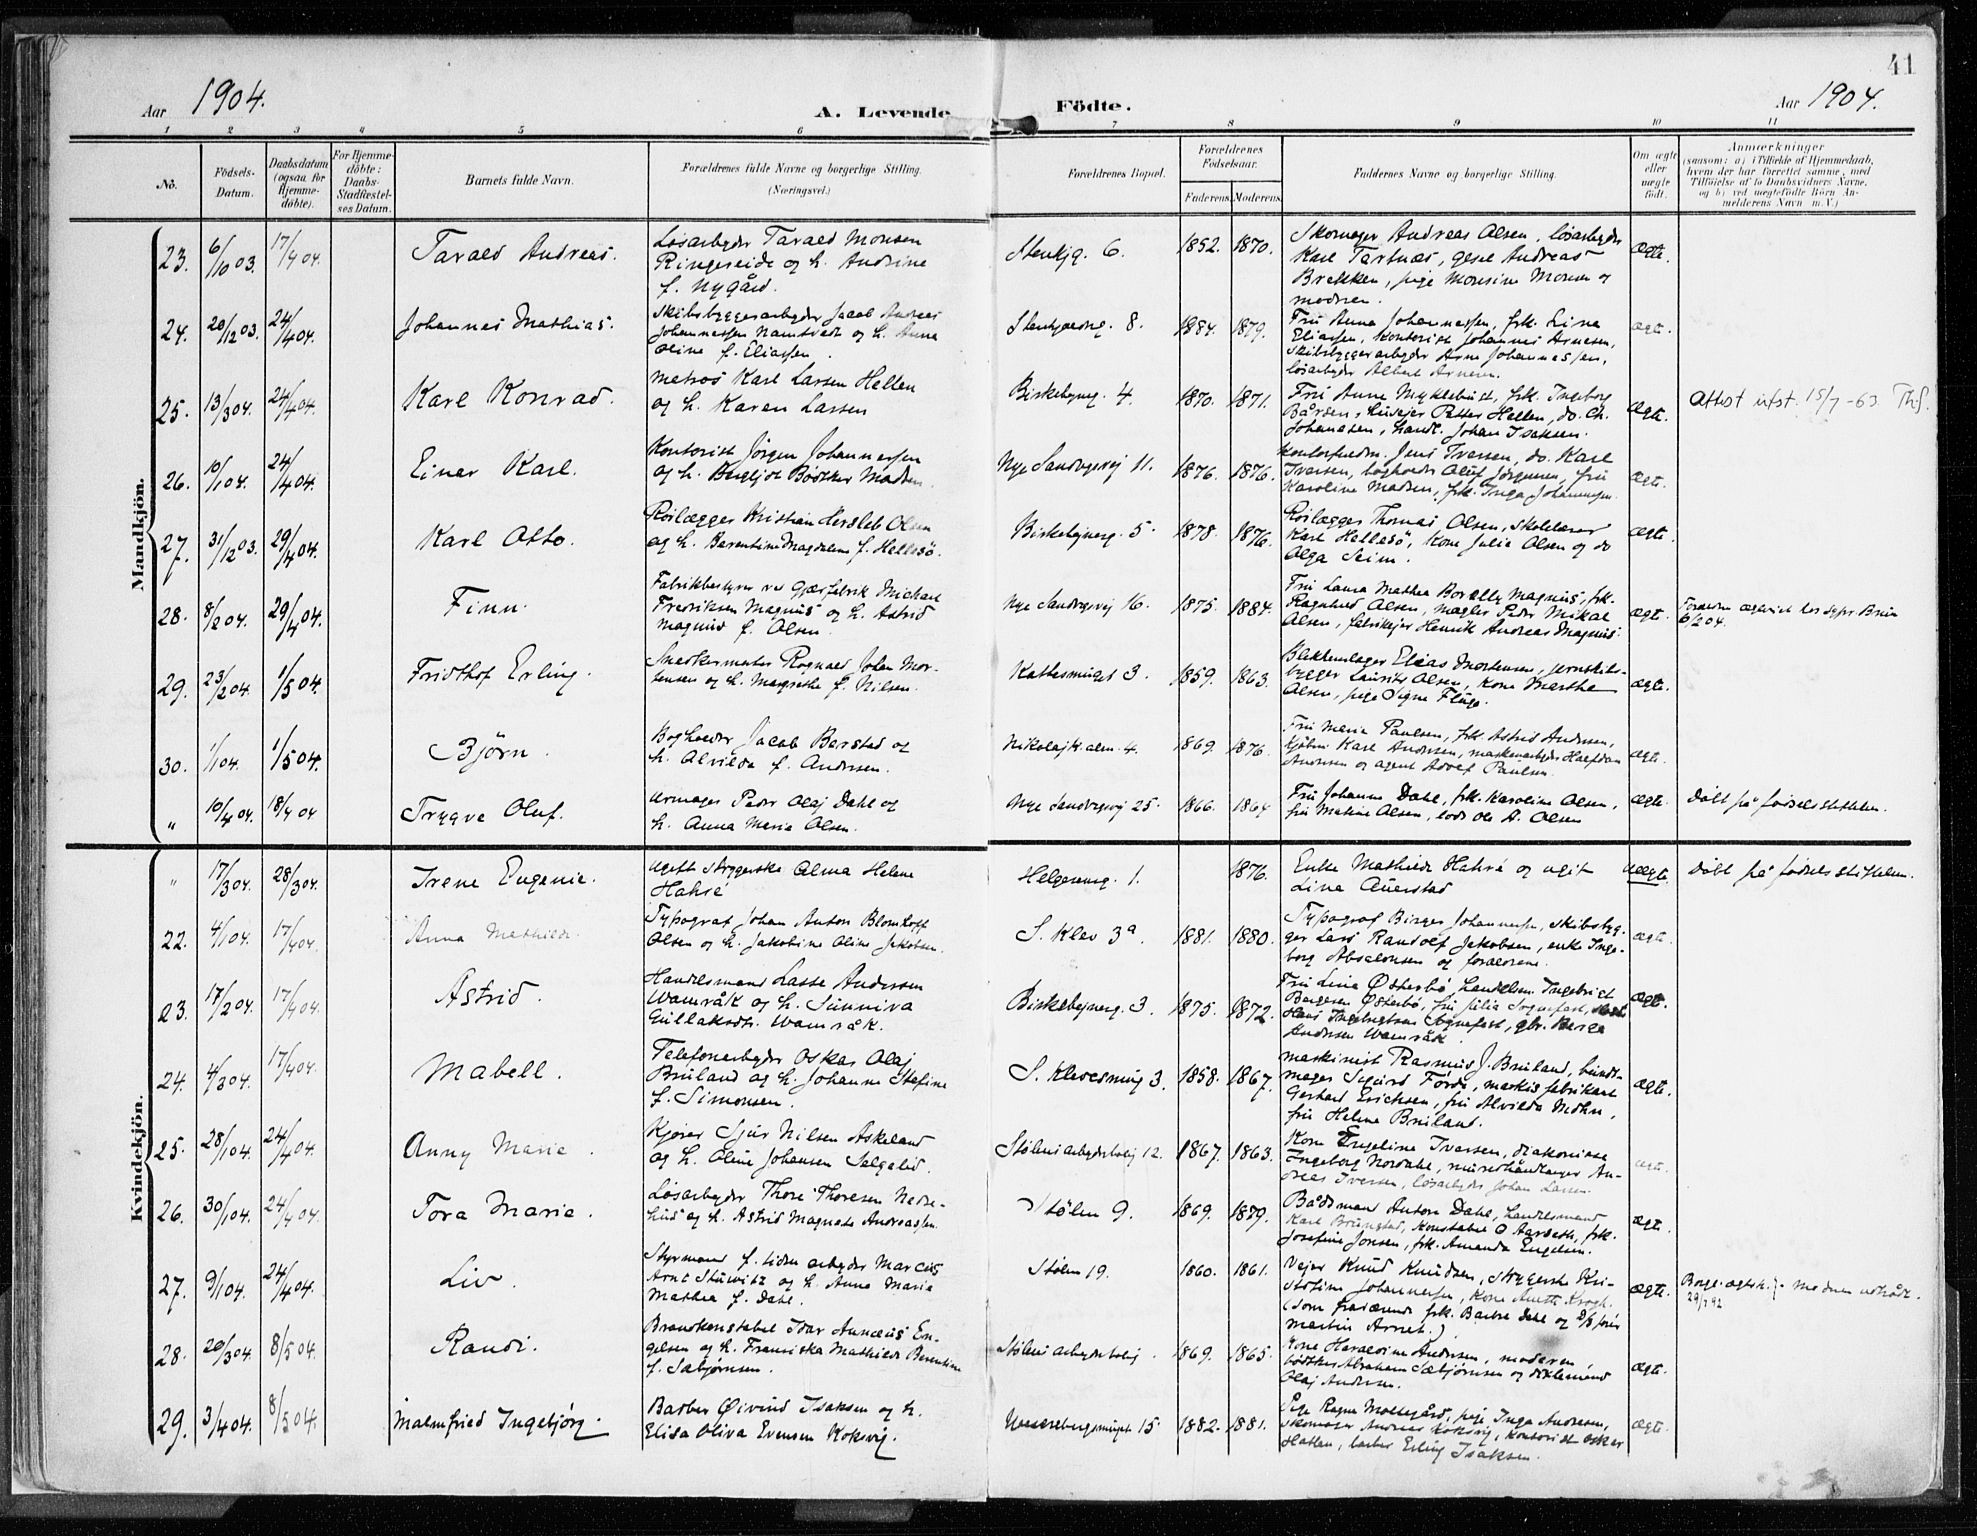 41
Aar 1904. A. Levende Födte. Aar 1904.
1 2 3 4 5 6 7 8 9 10 11
No.
Födsels-
Datum.
Daabsdatum
(ogsaa for
Hjemme-
döbte).
For Hjemme-
döbte:
Daabs-
Stadfæstel-
ses Datum.
Barnets fulde Navn.
Forældrenes fulde Navne og borgerlige Stilling.
(Næringsvei.)
Forældrenes Bopæl.
Forældrenes
Födselsaar.
Faderens Moderens
Faddernes Navne og borgerlige Stilling.
Om ægte
eller
uægte
födt.
Anmærkninger
(saasom: a) i Tilfælde af Hjemmedaab,
hvem der har forrettet samme, med
Tilföielse af to Daabsvidners Navne,
og b) ved uegtefödte Börn An-
melderens Navn m. V.)
Mandkjön.
23. 6/10 03. 17/4 04. Tarald Andreas.
Løsarbeyder Tarald Monsen
Ringereide og h. Andrine
f. Nygård.
Stenkjg. 6. 1852. 1870.
Skomager Andreas Olsen, løsarbeyder
Karl Tartnæs, gesel Andreas
Brekken, pige Monsine Monsen og
modren.
ægte.
24. 20/12 03. 24/4 04. Johannes Mathias.
Skibsbyggerarbeyder Jacob Andreas
Johannessen Namtvedt og h. Anna
Oline f. Eliassen.
8. 1884. 1879.
Fru Anna Johannessen, frk. Lina
Eliassen, kontorist Johannes Arnesen,
skibsbyggerarbeyder Arne Johannessen,
løsarbeyder Albert Arnesen.
ægte.
25. 13/3 04. 24/4 04. Karl Konrad.
Matros Karl Larsen Hellen
og h. Karen Larsen
Birkebeynerg. 4. 1870. 1871.
Fru Anne Myklebust, frk. Ingeborg
Bårdsen, husejer Petter Hellen, do. Ch.
Johannesen, handl. Johan Isaksen.
ægte.
Attest utst. 15/7 - 63 Th.S.
26. 10/1 04. 24/4 04. Einar Karl.
Kontorist Jørgen Johannessen
og h. Bergljot Bødtker Madsen.
Nye Sandvigsvej 11. 1876. 1876.
Kontorfuldm. Jens Iversen, do. Karl
Iversen, bogholder Oluf Jørgensen, fru
Karoline Madsen, frk. Inga Johannessen.
ægte.
27. 31/12 03. 29/4 04. Karl Otto.
Rørlægger Kristian Hersleb Olsen
og h. Berentine Magdalene f. Hellesø.
Birkebeynerg. 5. 1878. 1876.
Rørlægger Thomas Olsen, skolelærer
Karl Hellesø, kone Julie Olsen og do
Olga Seim.
ægte.
28. 8/2 04. 29/4 04. Finn.
Fabrikbestyrer ved Gjærfabrik Michael
Fredriksen Magnus og h. Astrid
Magnus f. Olsen.
Nye Sandvigsvej 16. 1875. 1884.
Fru Laura Mathea Magnus, frk.
Ragnhild Olsen, mægler Peder Mikal
Olsen, fabrikejer Henrik Andreas Magnus.
ægte.
6/2 04.
29. 23/2 04. 1/5 04. Fridthof Erling.
Snedkermester Rognald Johan Mor-
tensen og h. Magrethe f. Nilsen.
Kattesmuget 3. 1859. 1863.
Blikkenslager Elias Mortensen, jernskibs-
bygger Laurits Olsen, kone Marthe
Olsen, pige Signe Fluge.
ægte.
30. 1/1 04. 1/5 04. Bjørn.
Bogholder Jacob Berstad og
h. Alvilde f. Andersen.
Nikolajk. alm. 4. 1869. 1876.
Fru Maria Paulsen, frk. Astrid Andersen,
kjøbm Karl Andersen, maskinarbeyder Halfdan
Andersen og agent Adolf Paulsen.
ægte.
" 10/4 04. 18/4 04 Trygve Oluf.
Urmager Peder Olaj Dahl og
h. Anna Marie Olsen.
Nye Sandvigsvej 25. 1866. 1864
Fru Johanne Dahl, frk. Karoline Olsen,
fru Matine Olsen, lods Ole A. Olsen
ægte.
Døbt på fødselsstiftelsen.
Kvindekjön.
" 17/3 04. 28/3 04. Irene Eugenie.
Ugift strygerske Alma Helene
Hahré
Helgesensg. 1. 1876.
Enke Mathilde Hahré og ugift
Lina Auerstad
uægte.
Døbt på fødselsstiftelsen.
22. 4/1 04. 17/4 04. Anna Mathilde.
Typograf Johan Anton Blomhoff
Olsen og h. Jakobine Oline Jakobsen.
S. Klev 3a. 1881. 1880.
Typograf Birger Johannesen, skibsbyg-
ger Lars Randolf Jakobsen, enke Inge-
borg Absalonsen og forældrene.
ægte.
23. 17/2 04. 17/4 04. Astrid.
Handelsmand Lasse Andersen
Wamråk og h. Sunniva
Gullaksdtr. Wamråk.
Birkebeynerg. 3. 1875. 1872.
Fru Lina Østerbø, handelsm Ingebrigt
Børgesen Østerbø, fru Julia Sognefest,
Hans Ingebrigtsen Sognefest, gbr. Børge
Andersen Wamråk.
ægte.
24. 4/3 04. 17/4 04. Mabell.
Telefonarbeyder Oskar Olaj
Bruland og h. Johanne Stefine
f. Simonsen.
S. Klevesmug 3. 1858. 1867.
Maskinist Rasmus J. Bruland, bundt-
mager Sigurd Førde, markisfabrikant
Gerhard Erichsen, fru Alvilda Mohn,
fru Helene Bruland.
ægte.
25. 28/1 04. 24/4 04. Anny Marie.
Kjører Sjur Nilsen Askeland
og h. Oline Johansen Salgalid.
Stølens arbeyderbolig 12. 1867. 1863.
Kone Engeline Iversen, diakonisse
Ingeborg Nordahl, murerhåndlanger An-
dreas Iversen, løsarbeyder Johan Larsen.
ægte.
26. 30/1 04. 24/4 04. Tora Marie.
Løsarbeyder Thore Thoresen Nedre-
hus og h. Astrid Magnete Andreassen.
Stølen 9. 1869. 1879.
Bådsmand Anton Dahl, handelsmand
Karl Brungstad, konstabel O Aarseth, frk.
Josefine Jonsen, frk. Amanda Engelsen.
ægte.
27. 9/1 04. 24/4 04. Liv.
Styrmand f. tiden arbeyder Marcus
Arnt Stuwitz og h. Anna Marie
Mathea f. Dahl.
Stølen 19. 1860. 1861.
Vejer Knud Knudsen, strygerske Kri-
stofine Johannesen, kone Anette Krogh.
(som fraværende frk. Barbra Dahl og
Martin Arnet.)
ægte.
Borg. ægtesk.
29/7 92
28. 20/3 04. 8/5 04. Randi.
Brandkonstabel Idar Annæus En-
gelsen og h. Franciska Mathilde Berentine
f. Sæbjørnsen.
Stølens arbeyderbolig. 1869. 1865.
Kone Haraldine Andersen, moderen,
bødtker Abraham Sæbjørnsen og
Olaj Andersen.
ægte.
29. 3/4 04. 8/5 04. Malmfried Ingebjørg.
Barber Øivind Isaksen og h.
Elisa Oliva Evensen Koksvig.
15. 1882. 1881.
Pige Ragna Mollegård, pige Inga Andersen,
skomager Andreas Koksvig, kontorist Oskar
Hatlen, barber Erling Isaksen.
ægte.